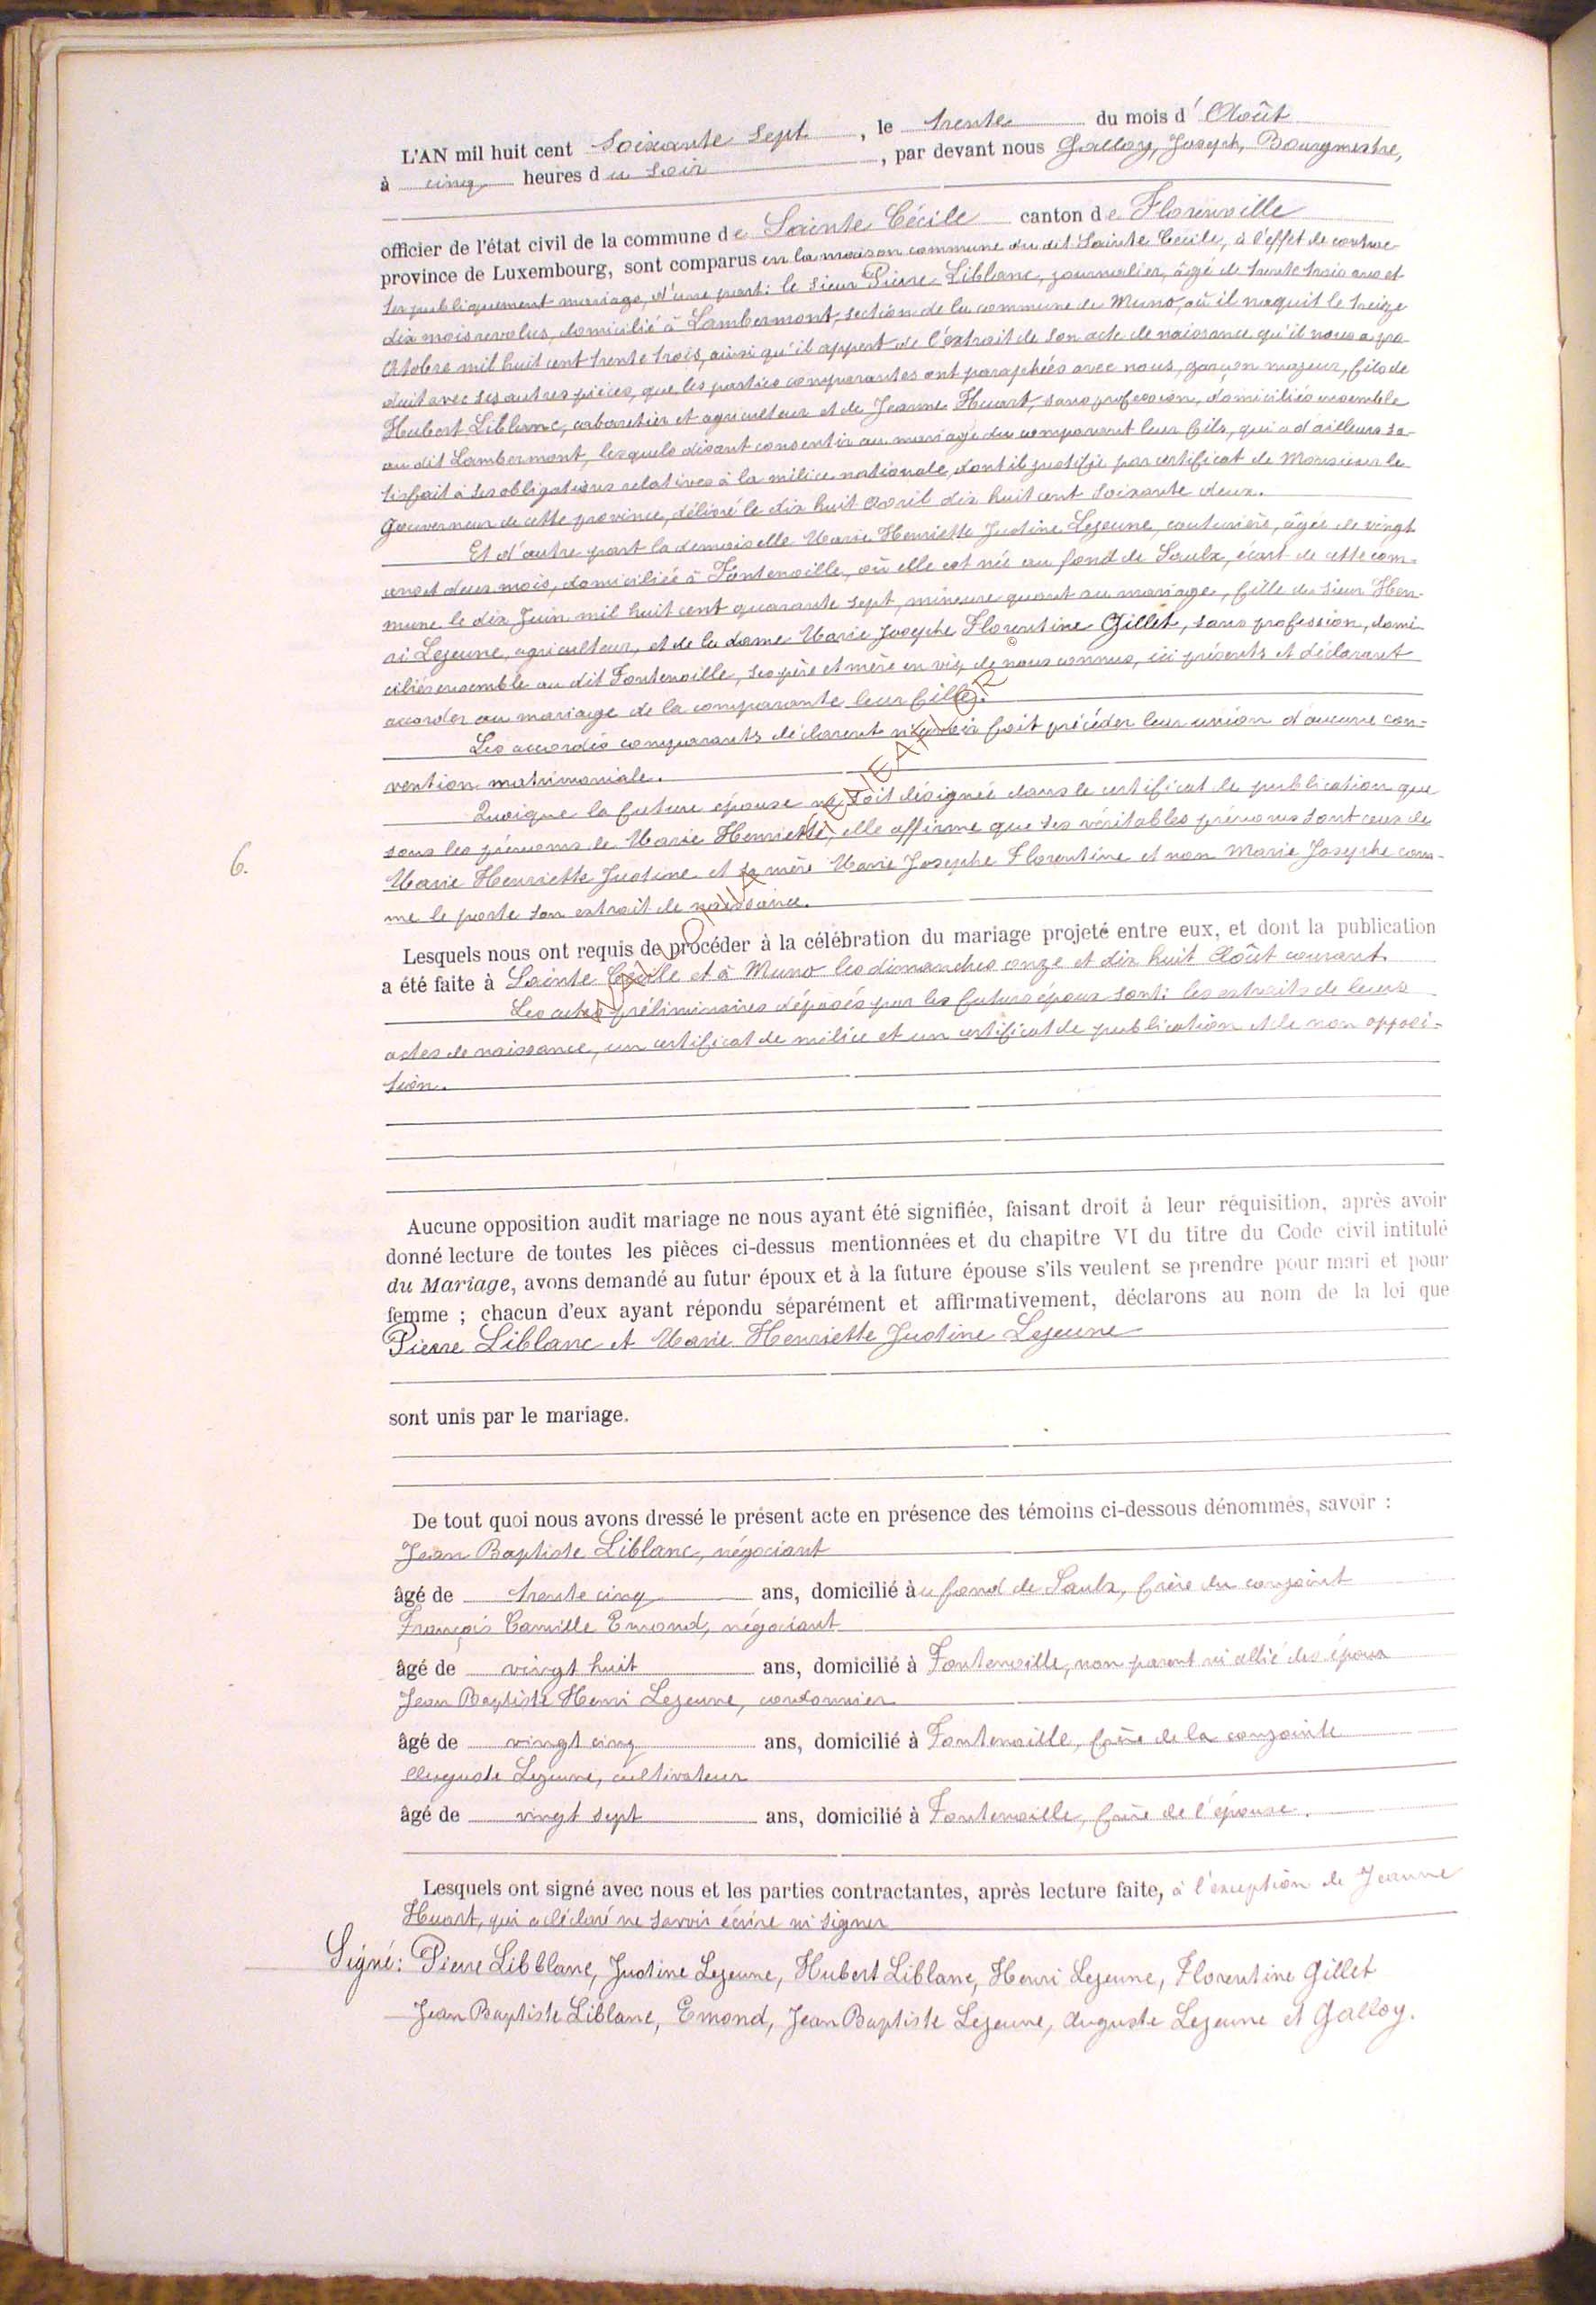 L'AN mil huit cent soixante sept, le trente du mois d'Août
à cinq heures du soir, par devant nous Galloy, Joseph, Bourgmestre,
officier de l'état civil de la commune de Sainte Cécile canton de Florenville
province de Luxembourg, sont comparus en la maison commune du dit Sainte Cécile, à l'effet de contrac-
ter publiquement mariage, d'une part: le sieur Pierre Liblanc, journalier, âgé de trente trois ans et
dix mois revolus, domicilié à Lambermont, section de la commune de Muno, où il naquit le treize
Octobre mil huit cent trente trois, ainsi qu'il appert de l'extrait de son acte de naissance qu'il nous a pro-
duit avec ses autres pièces, que les parties comparantes ont paraphées avec nous, garçon majeur, fils de
Hubert Liblanc, cabaretier et agriculteur et de Jeanne Huart, sans profession, domiciliés ensemble
au dit Lambermont, lesquels disant consentir au mariage du comparant leur fils, qui a d'ailleurs sa-
tisfait à ses obligations relatives à la milice nationale, dont il justifie par certificat de Monsieur le
Gouverneur de cette province, délivré le dix huit Avril dix huit cent soixante deux.
Et d'autre part la demoiselle Marie Henriette Justine Lejeune, couturière, âgée de vingt
ans et deux mois, domiciliée à Fontenoille, où elle est née au fond de Saulx, écart de cette com-
mune le dix Juin mil huit cent quarante sept, mineure quant au mariage, fille du sieur Hen-
ri Lejeune, agriculteur, et de la dame Marie Josephe Florentine Gillet, sans profession, domi-
ciliés ensemble au dit Fontenoille, ses père et mère en vie, de nous connus, ici présents et déclarant
accorder au mariage de la comparante leur fille.
Les accordés comparants déclarent n'avoir fait précéder leur union d'aucune con-
vention matrimoniale.
Quoique la future épouse ne soit désignée dans le certificat de publication que
sous les prénoms de Marie Henriette, elle affirme que ses véritables prénoms sont ceux de
6.
Marie Henriette Justine et sa mère Marie Josephe Florentine et non Marie Josephe com-
me le porte son extrait de naissance.
Lesquels nous ont requis de procéder à la célébration du mariage projeté entre eux, et dont la publication
a été faite à Sainte Cécile et à Muno les dimanches onze et dix huit Août courant.
Les actes préliminaires déposés par les futurs époux sont: les extraits de leurs
actes de naissance, un certificat de milice et un certificat de publication et de non opposi-
tion.
Aucune opposition audit mariage ne nous ayant été signifiée, faisant droit à leur réquisition, après avoir
donné lecture de toutes les pièces ci-dessus mentionnées et du chapitre VI du titre du Code civil intitulé
du Mariage, avons demandé au futur époux et à la future épouse s'ils veulent se prendre pour mari et pour
femme ; chacun d'eux ayant répondu séparément et affirmativement, déclarons au nom de la loi que
Pierre Liblanc et Marie Henriette Justine Lejeune
sont unis par le mariage.
De tout quoi nous avons dressé le présent acte en présence des témoins ci-dessous dénommés, savoir :
Jean Baptiste Liblanc, négociant
âgé de trente cinq ans, domicilié au fond de Saulx, frère du conjoint
François Camille Emond, négociant
âgé de vingt huit ans, domicilié à Fontenoille, non parent ni allié des époux
Jean Baptiste Henri Lejeune, cordonnier
âgé de vingt cinq ans, domicilié à Fontenoille, frère de la conjointe
Auguste Lejeune, cultivateur
âgé de vingt sept ans, domicilié à Fontenoille, frère de l'épouse.
Lesquels ont signé avec nous et les parties contractantes, après lecture faite, à l'exception de Jeanne
Huart, qui a déclaré ne savoir écrire ni signer
Signé: Pierre Libblanc, Justine Lejeune, Hubert Liblanc, Henri Lejeune, Florentine Gillet
Jean Baptiste Liblanc, Emond, Jean Baptiste Lejeune, Auguste Lejeune et Galloy.